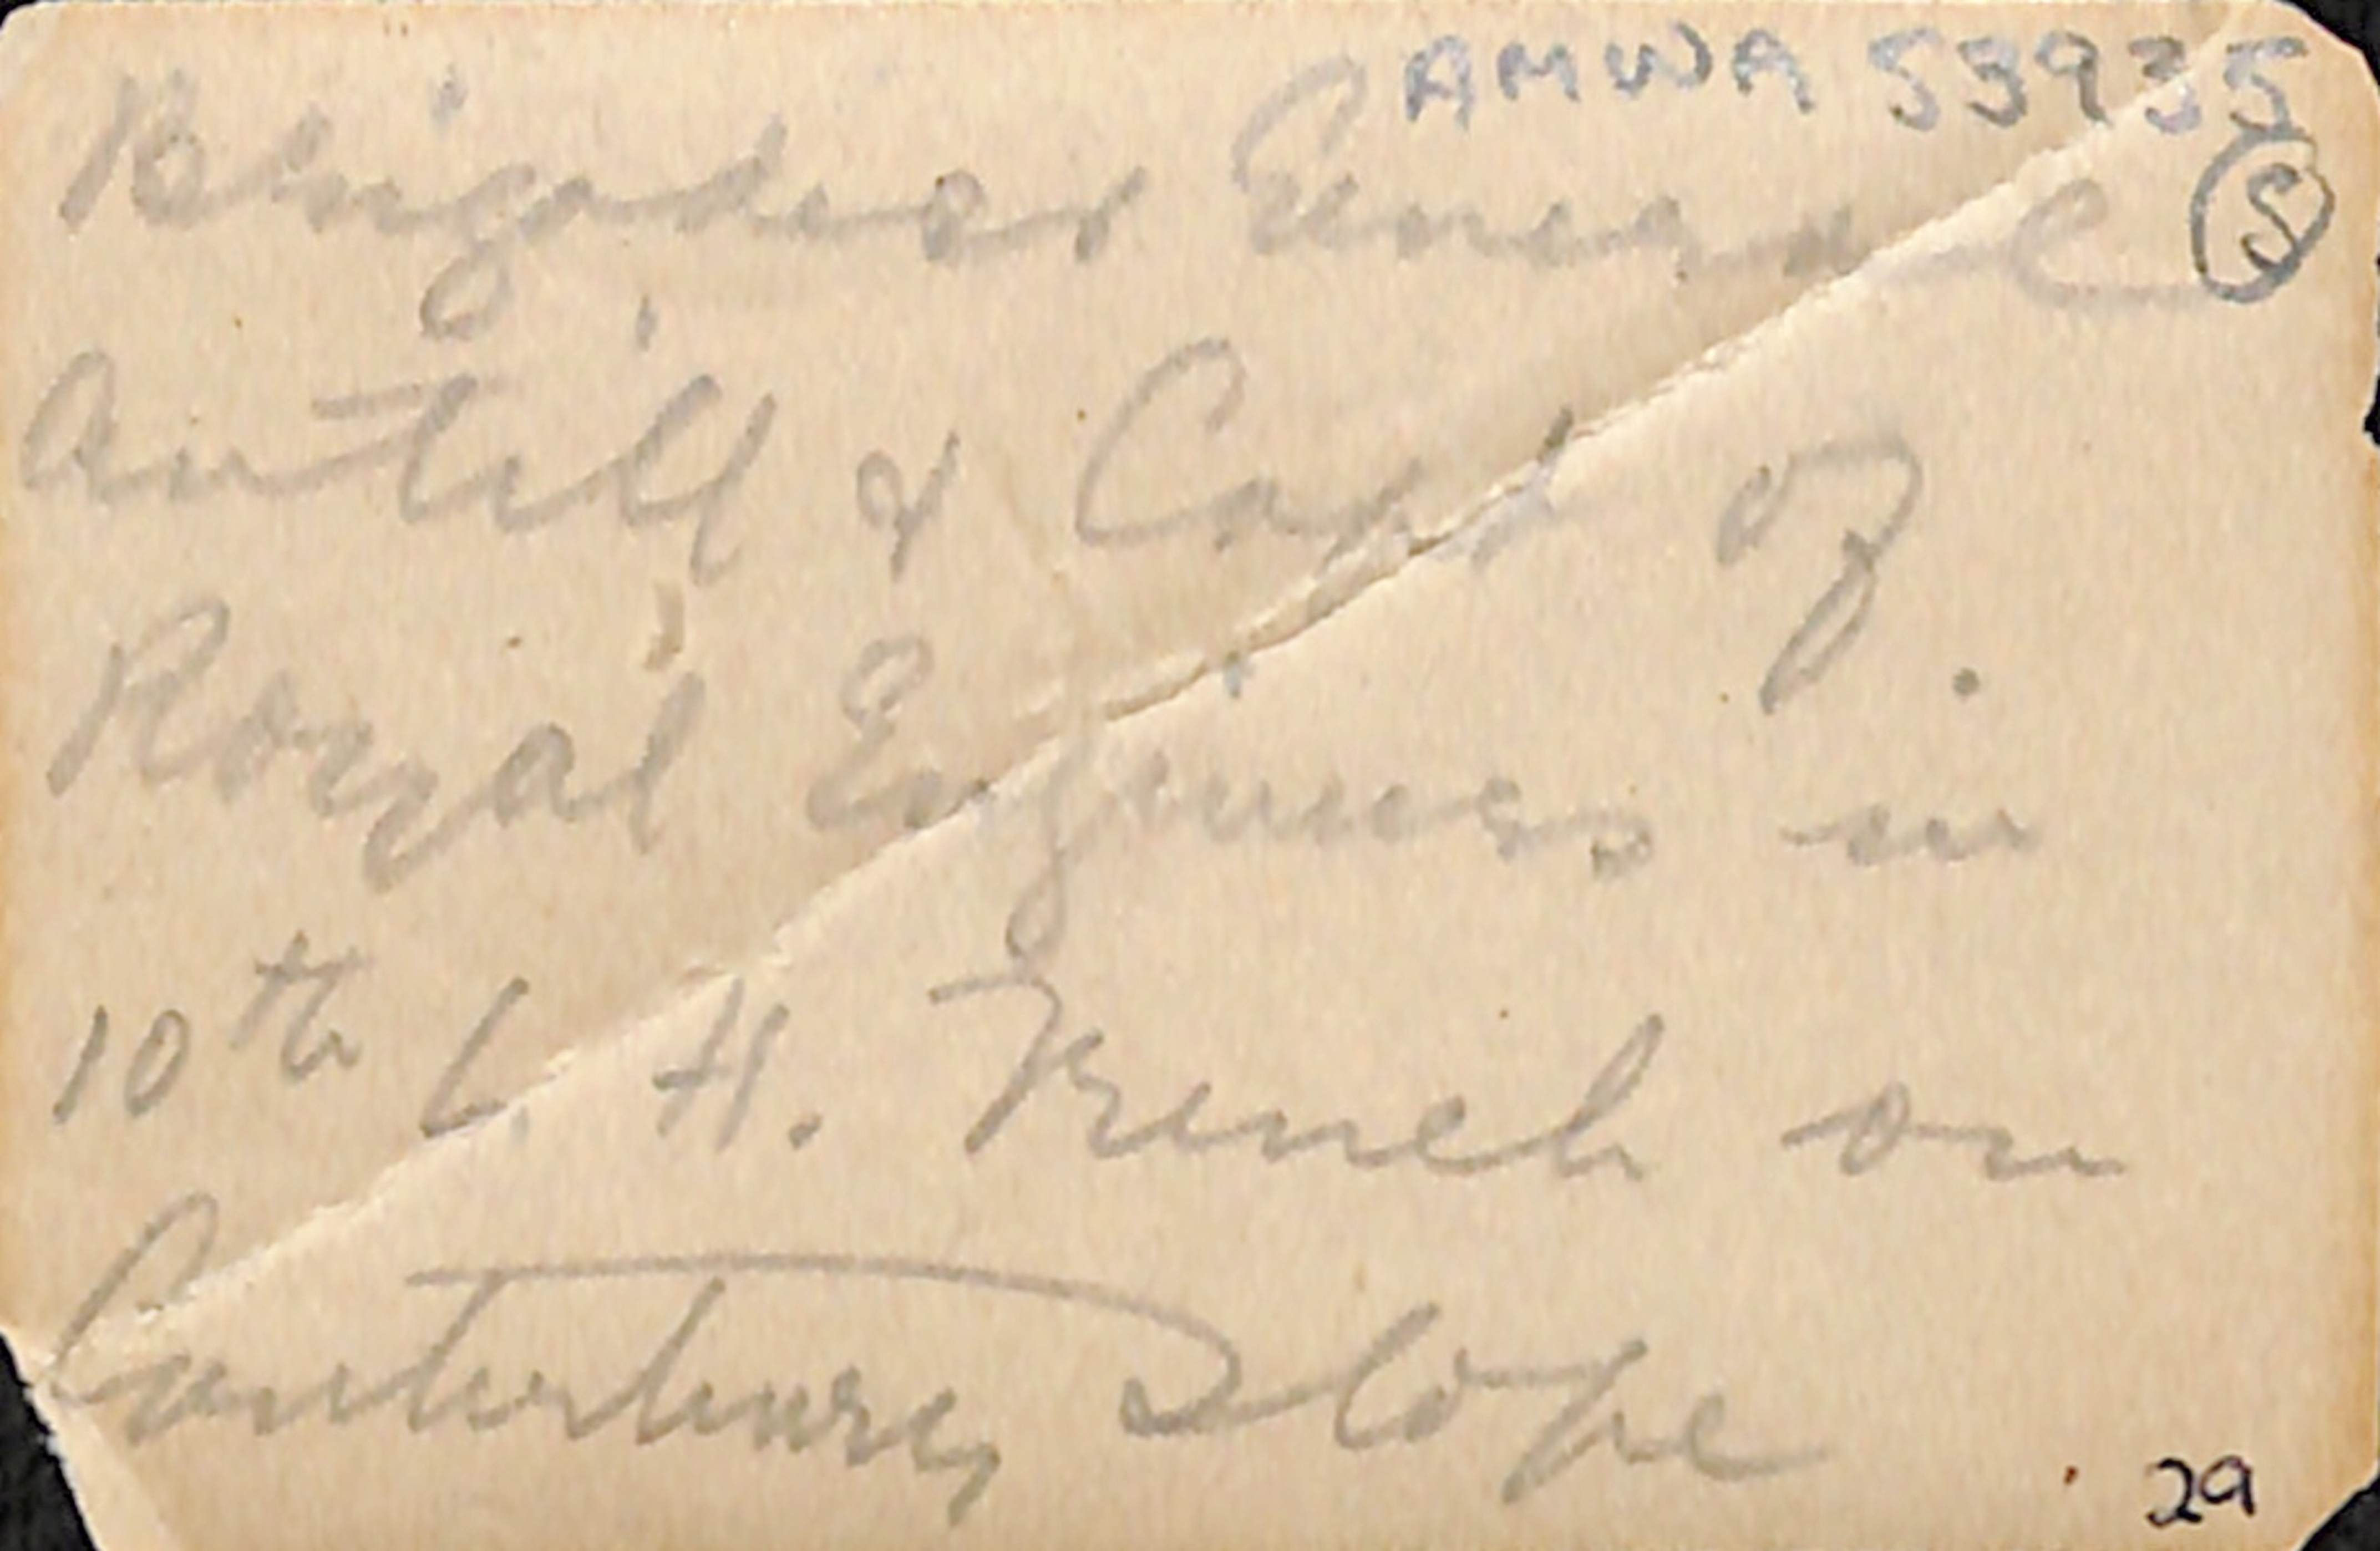 AMWA 53935
Brigadier General
Ⓢ
Antill & Capt of
Royal Engineers in
10th L. H. Trench on
Canterbury Slope
29